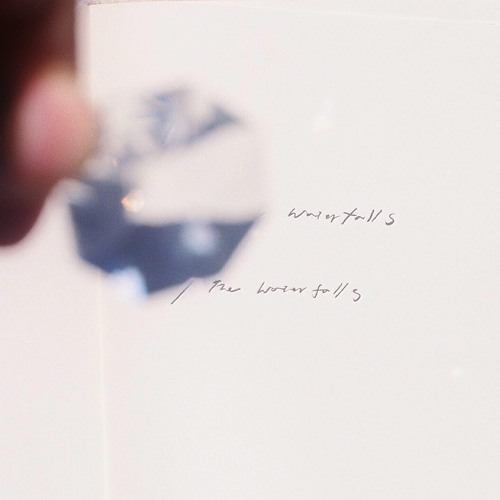 waterfalls
/ the waterfalls